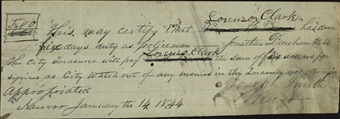 Lorenzo Clark
This may certify that has done
five days duty as Policeman Jonathan Dunham the
The City Treasurer will pay Lorenzo Clark the sum of five dollars for
signed as City Watch out of any monies in the Treasury not otherwise
Appropriated Joseph Smith
Nauvoo January the 14 1844 Mayor